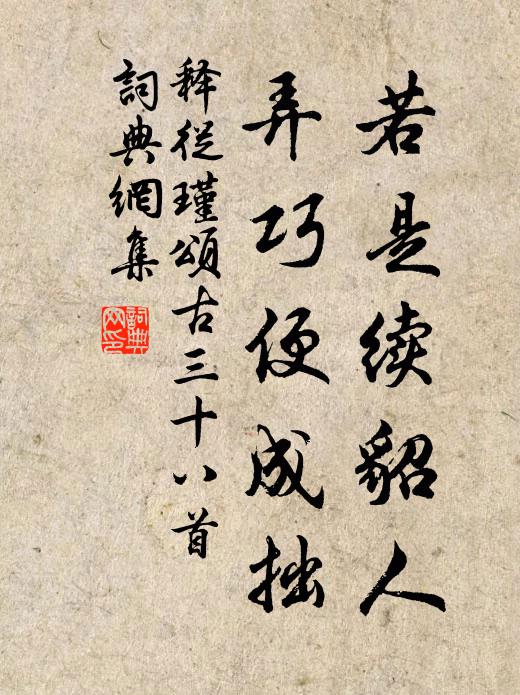 若是续貂人
弄巧便成拙
释從瑾頌古三十八首
詞典網集
詞典
网印